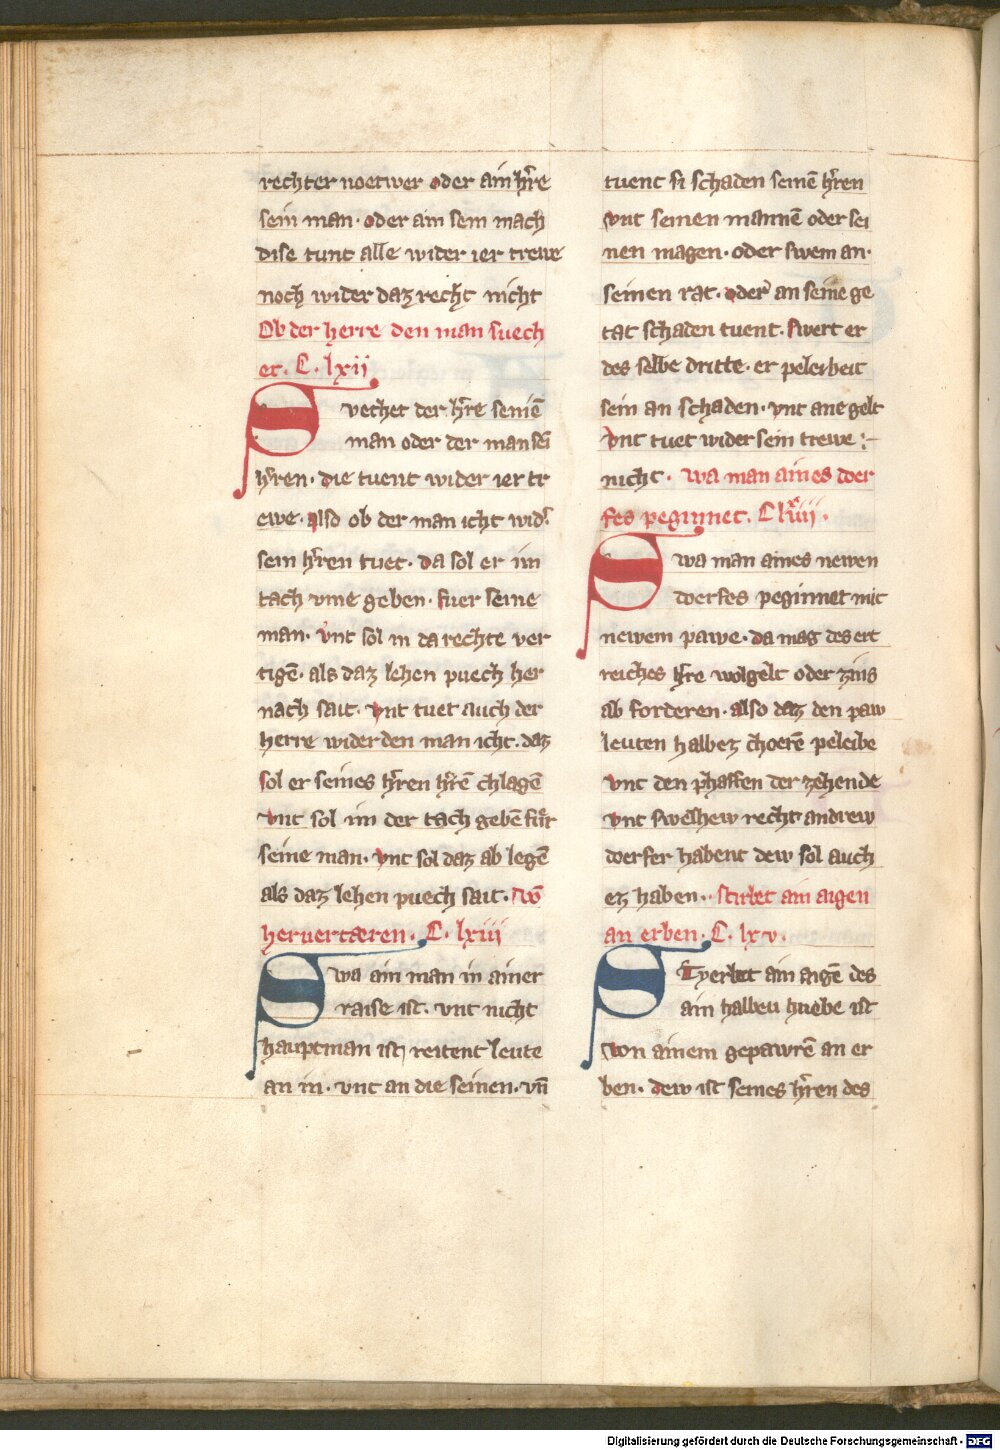 rechter noetwer oder ain hr̄re
sein man · oder ain sem mach
dise tunt alle wider ier trewe
noch wider daz recht nicht
Ob der herre den man suech
et · C · lxii
Svechet der hr̄re seinē
man oder der man seī
hr̄ren · die tuent wider ier tr
ewe · also ob der man icht wid̓
sein hr̄ren tuet · da sol er im
tach vme geben · fuer seine
man · vnt sol in da rechte ver
tigē · als daz lehen puech her
nach sait · vnt tuet auch der
herre wider den man icht · daz
sol er seines hr̄ren hr̄rē chlagē
vnt sol im der tach gebē fuͤr
seine man · vnt sol daz ab legē
als daz lehen puech sait · vō
heruertæren · C · lxiii
Swa ain man in ainer
raise ist · vnt nicht
hauptman ist reitent leute
an in · vnt an die seinen · vn̄
tuent si schaden seinē hr̄ren
vnt seinen mannē oder sei
nen magen · oder swem an ·
seinen rat · oder an seine ge
tat schaden tuent · swert er
des selbe dritte · er peleibeit
sein an schaden · vnt ane gelt
vnt tuet wider sein trewe :–
nicht · wa man aines doer
fes peginnet · C lxiiii ·
Swa man aines newen
doerfes peginnet mit
newem pawe · da mag des ert
reiches hr̄re wol gelt oder zins
ab forderen · also daz den paw
leuten halbez choerē peleibe
vnt den phaffen der zehende
vnt swelhew recht andrew
doerfer habent dew sol auch
ez haben · stirbet ain aigen
an erben · C · lxv ·
Styerbet ain aigē des
ain halbeu huebe ist
von ainem gepawrē an er
ben · dew ist seines hr̄ren des
Digitalisierung gefördert durch die Deutsche Forschungsgemeinschaft - DFG